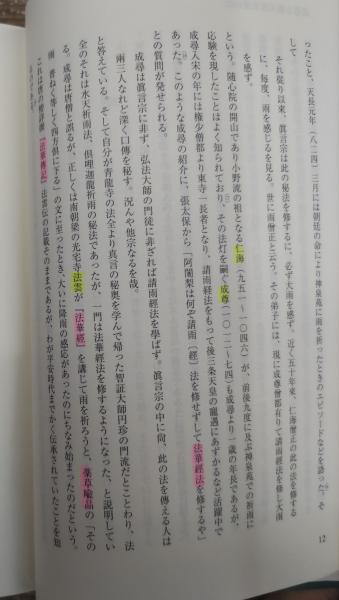 12
ったこと、天長元年（八二四）三月には朝廷の命により神泉苑に雨を祈ったときのエピソードなどを語った。そ
して
それ従り以来、眞言宗は此の秘法を修するに、必ず大雨を感ず。近く五十年來、仁海僧正の此の法を修する
に、毎度、雨を感じるを見る。世に雨僧正と云う。その弟子には、現に成尊僧都有りて請雨経法を修し大雨
を感ず。
という。随心院の開山であり小野流の祖となる仁海（九五一～一〇四六）が、前後九度に及ぶ神泉苑での祈雨に
応験を現したことはよく知られており、その法灯を嗣ぐ成尊（一〇一二～七四）も成尋より一歳の年長であるが、
成尋入宋の年には権少僧都より東寺一長者となり、請雨経法をもって後三条天皇の寵遇にあずかるなど活躍中で
あった。このような成尋の紹介に、張太保から「阿闍梨は何ぞ請雨（経）法を修せずして法華經法を修するや」
との質問が発せられる。
成尋は眞言宗に非ず、弘法大師の門徒に非ざれば請雨經法を學ばず。眞言宗の中に尚、此の法を傳える人は
兩三人なれど深く口傳を秘す。況んや他宗なるを哉。
と答えている。そして自分が青龍寺の法全より真言の秘奥を学んで帰った智証大師円珍の門流だとことわり、法
全のそれは水天祈雨法、倶哩迦龍祈雨の秘法であったが、一門は法華經法を修するようになった、と説明してい
る。成尋は唐僧と誤るが、正しくは南朝梁の光宅寺法雲が『法華經』を講じて雨を祈ろうと、薬草喩品の「その
雨　普ねく等しくて四方倶に下る」の文に至ったとき、大いに降雨の感応があったのにちなみ始まったのだという。
これは唐の僧詳撰『法華傳記』法雲伝の記載そのままであるが、わが平安時代までかく伝承されていたことを知